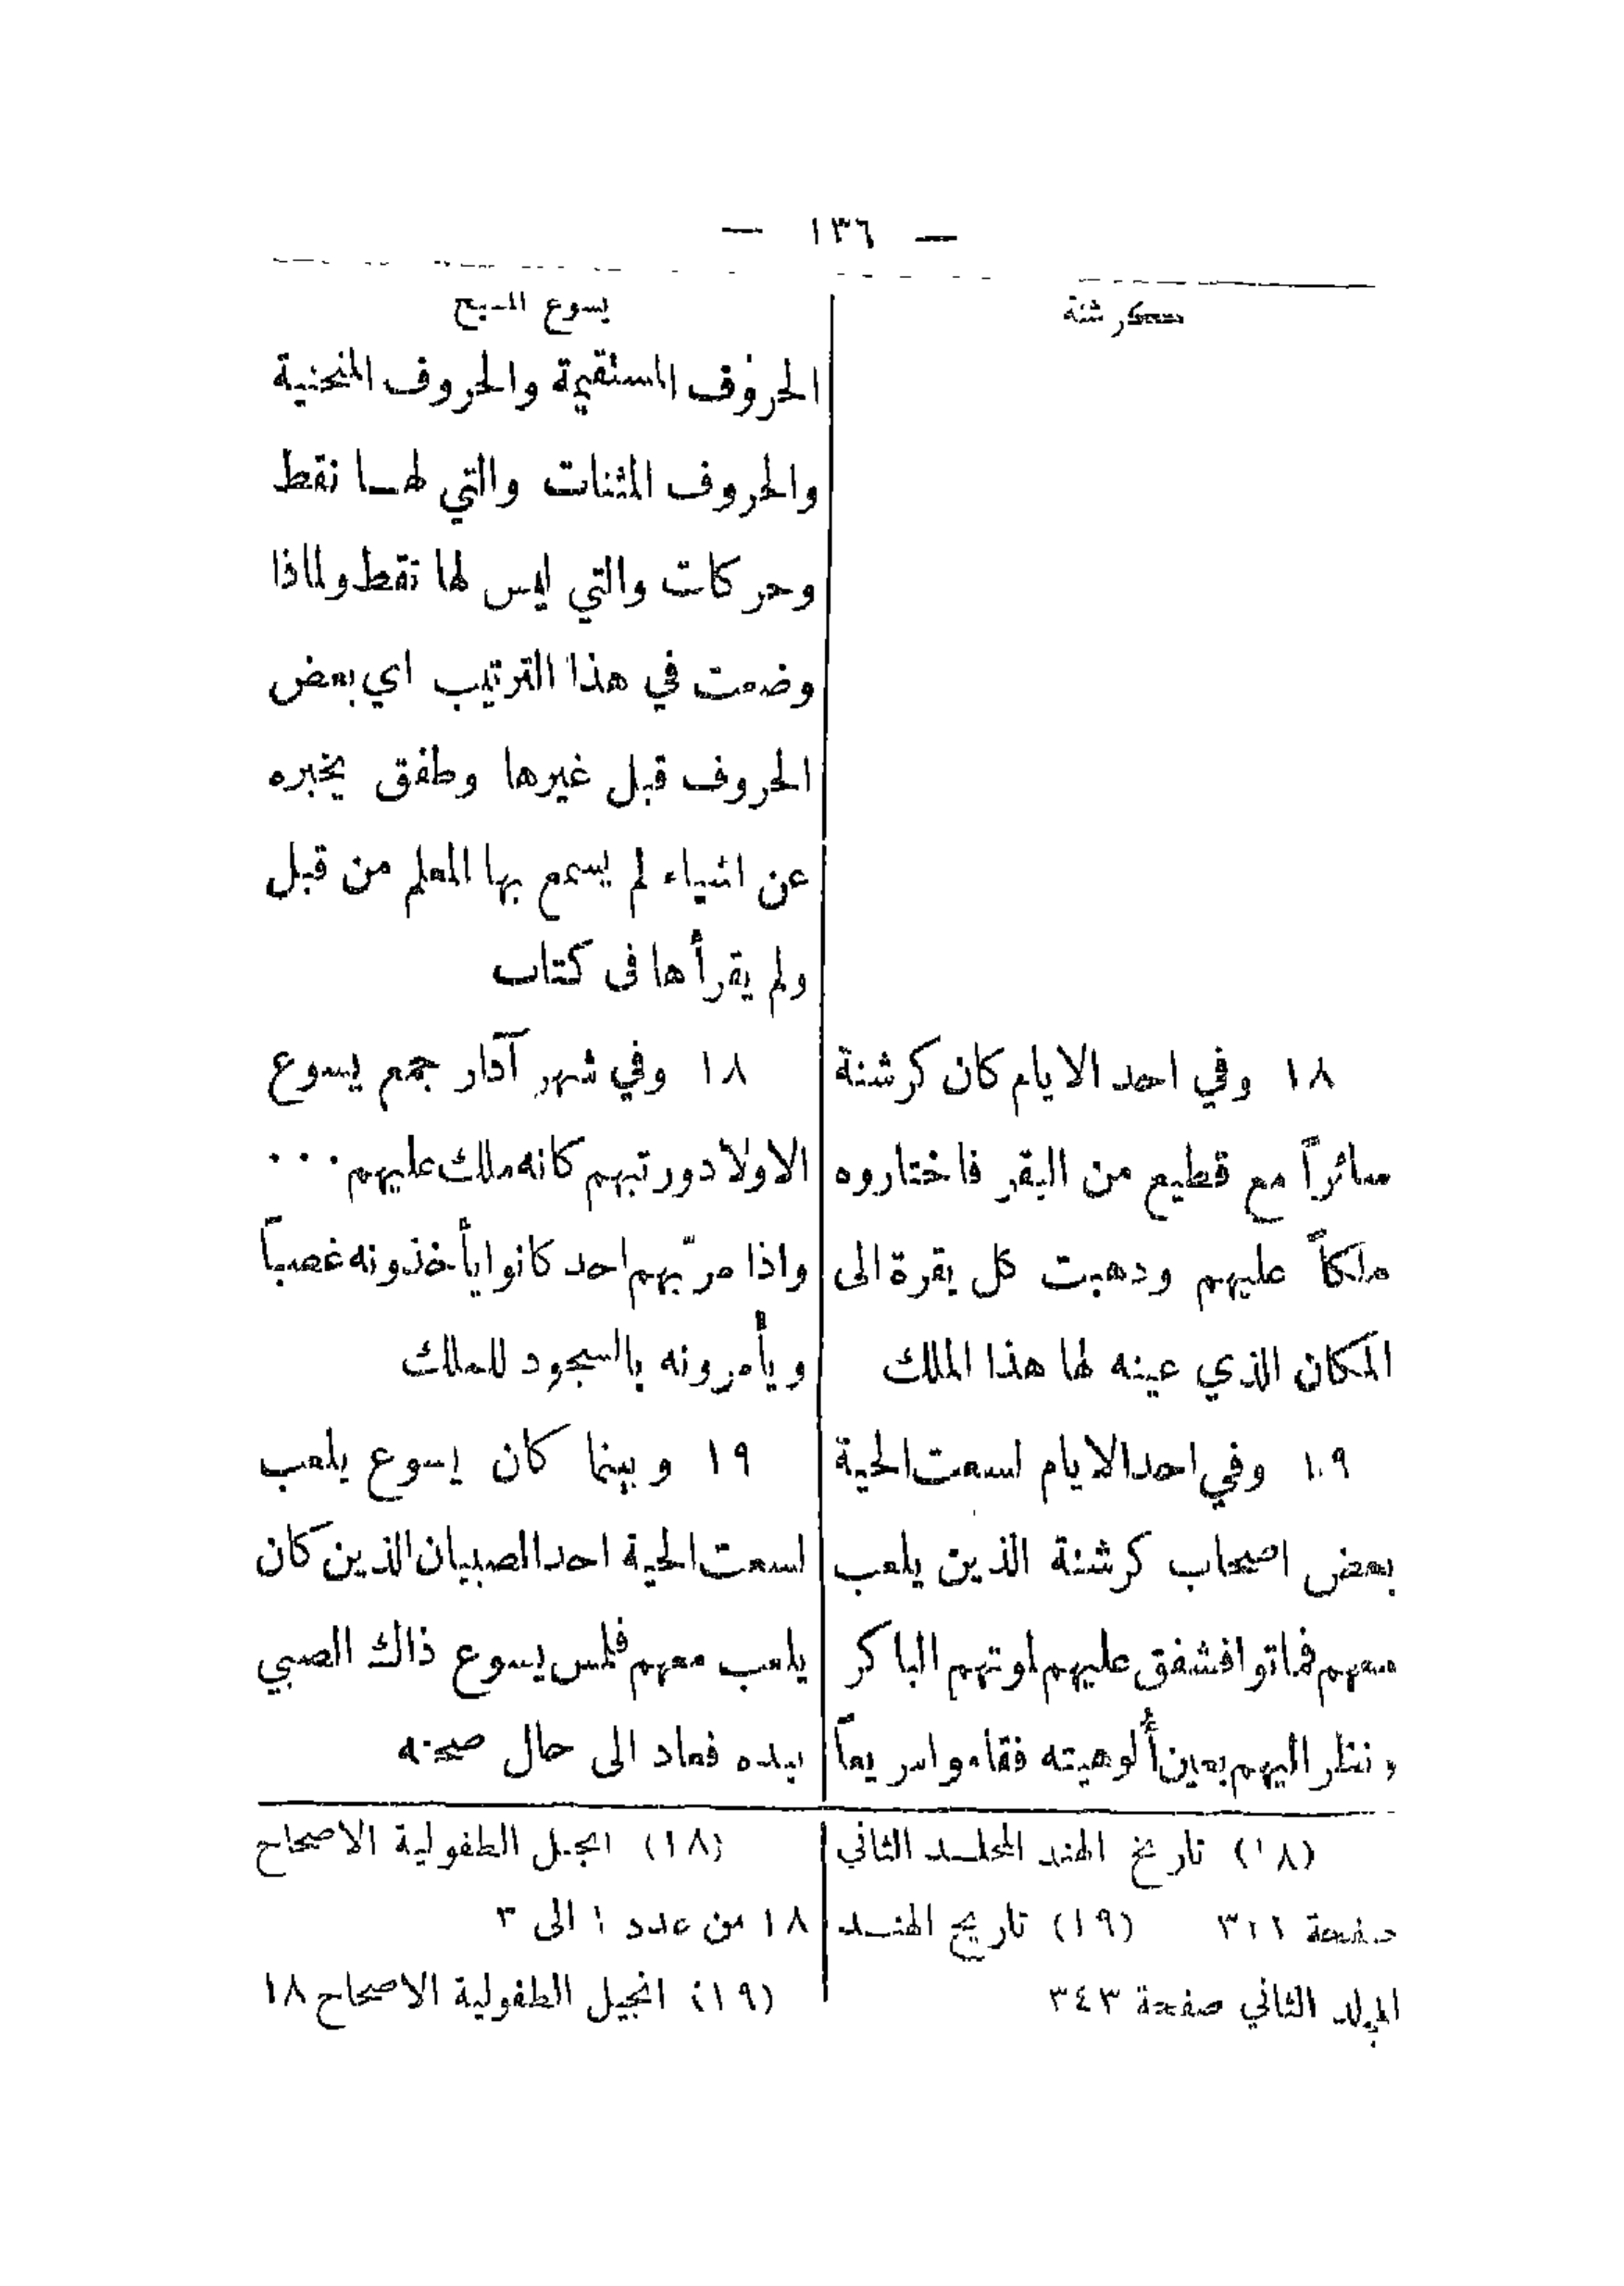 — ١٣٦ —
كرشنة
١٨ وفي احد الايام كان كرشنة
سائراً مع قطيع من البقر فاختاروه
ملكاً عليهم وذهبت كل بقرة الى
المكان الذي عينه لها هذا الملك
١٩ وفي احد الايام لسعت الحية
بعض اصحاب كرشنة الذين يلعب
معهم فماتوا فشفق عليهم لموتهم الباكر
ونظر اليهم بعين ألوهيته فقاموا سريعاً
(١٨) تاريخ الهند المجلد الثاني
صفحة
(١٩) تاريخ الهند
المجلد الثاني صفحة ٣٤٣
يسوع المسيح
الحروف المستقيمة والحروف المنحنية
والحروف المثنات والتي لها نقط
وحركات والتي ليس لها نقط ولماذا
وضعت في هذا الترتيب اي بعض
الحروف قبل غيرها وطفق يخبره
عن اشياء لم يسمع بها المعلم من قبل
ولم يقرأها في كتاب
١٨ وفي شهر آذار جمع يسوع
الاولاد ورتبهم كانه ملك عليهم ...
واذا مرّ بهم احد كانوا يأخذونه غصباً
ويأمرونه بالسجود للملك
١٩ وبينما كان يسوع يلعب
لسعت الحية احد الصبيان الذين كان
يلعب معهم فلمس يسوع ذاك الصبي
بيده فعاد الى حال صحته
(١٨) انجيل الطفولية الاصحاح
١٨ من عدد ١ الى ٣
(١٩) انجيل الطفولية الاصحاح ١٨